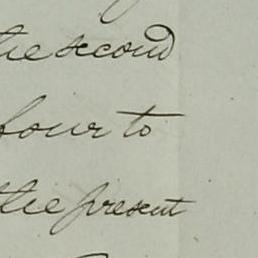 the second
four to
the present